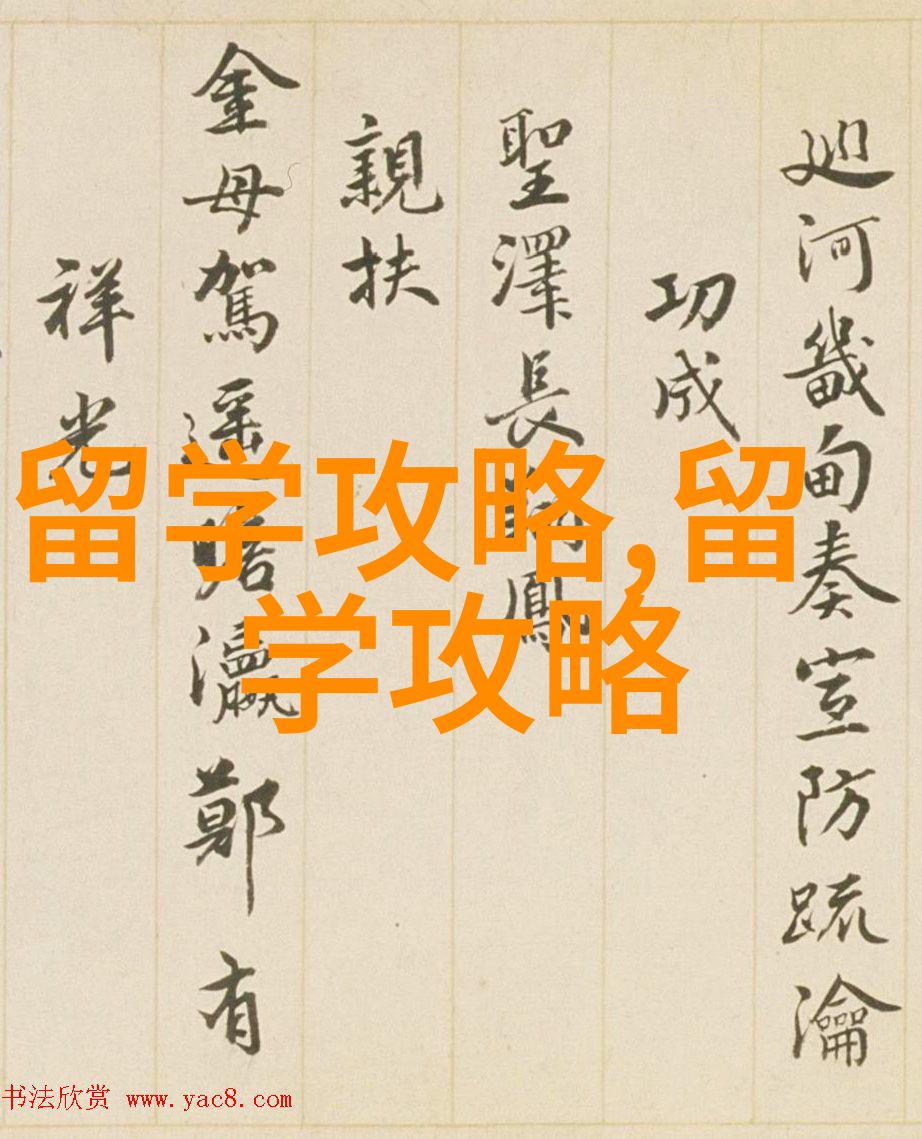 廵河畿甸奏宣防疏瀹
功成
聖澤長翔鳳
親扶
金母駕遥瞻瀛鄭有
祥光
留学攻略,留
学攻略
书法欣赏 www.yac8.com